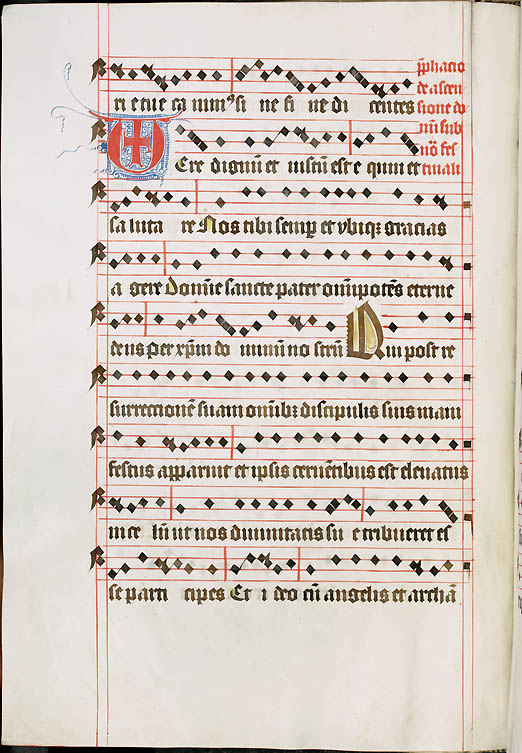 ri etue ca nimꝰ si ne fi ne di centes
p̄phacio
de ascen
sione do
mī sub
nō fes
tiuali
Ere dignū et iustū est e quū et
saluta re Nos tibi semꝑ et vbiqꝫ gracias
a gere domīe sancte pater omīpotēs eterne
deus per xp̄m do minum no strū Qui post re
surrectionē suam omībꝫ discipulis suis mani
festus apparuit et ipsis cernētibus est eleuatus
in ce lū ut nos diuinitatis su e tribueret es
se parti cipes Et i deo cū angelis et archā